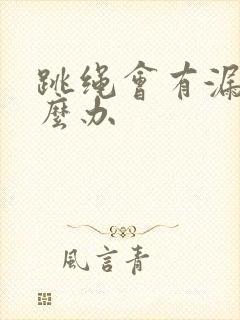 跳绳會有漏
麼办
風言青